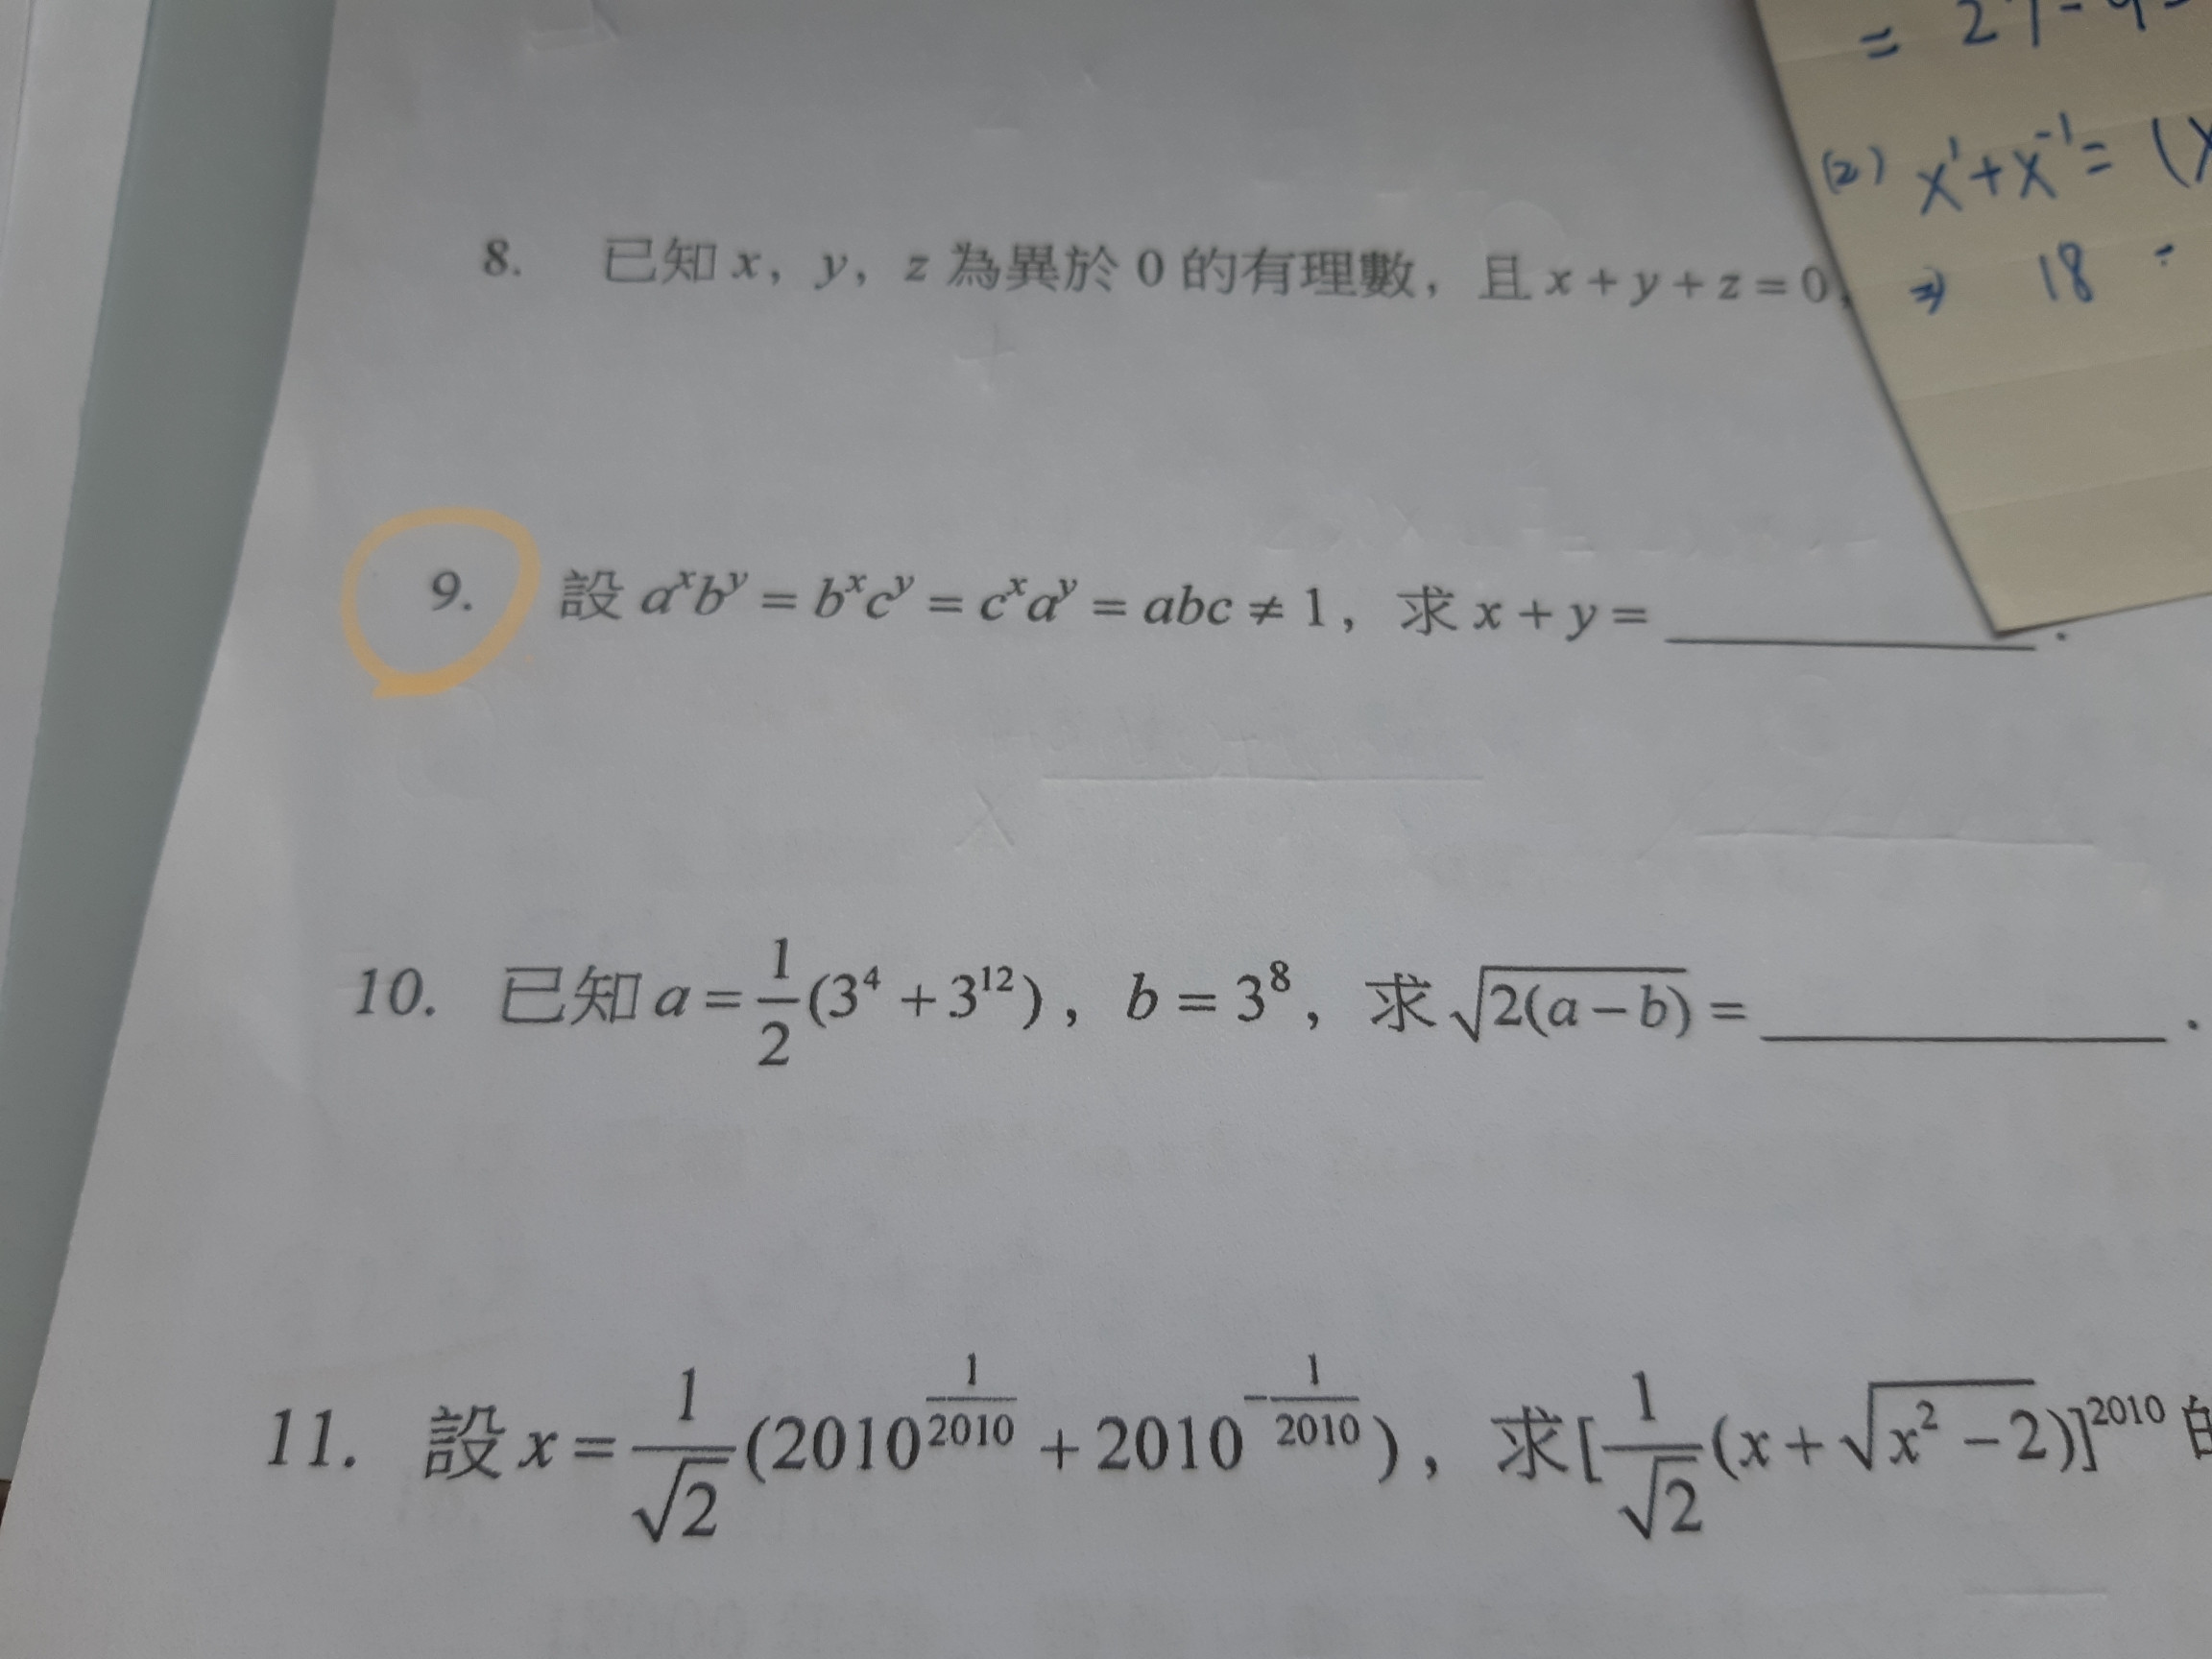 = 27 - 9
(2) x¹ + x⁻¹ = (x
⇒ 18 =
8. 已知 x, y, z 為異於 0 的有理數, 且 x + y + z = 0,
9. 設 aˣbʸ = bˣcʸ = cˣaʸ = abc ≠ 1, 求 x + y = ________.
10. 已知 a = 1/2(3⁴ + 3¹²), b = 3⁸, 求 √(2(a − b)) = ________.
11. 設 x = 1/√2(2010^(1/2010) + 2010^(−1/2010)), 求 [1/√2(x + √(x² − 2))]²⁰¹⁰